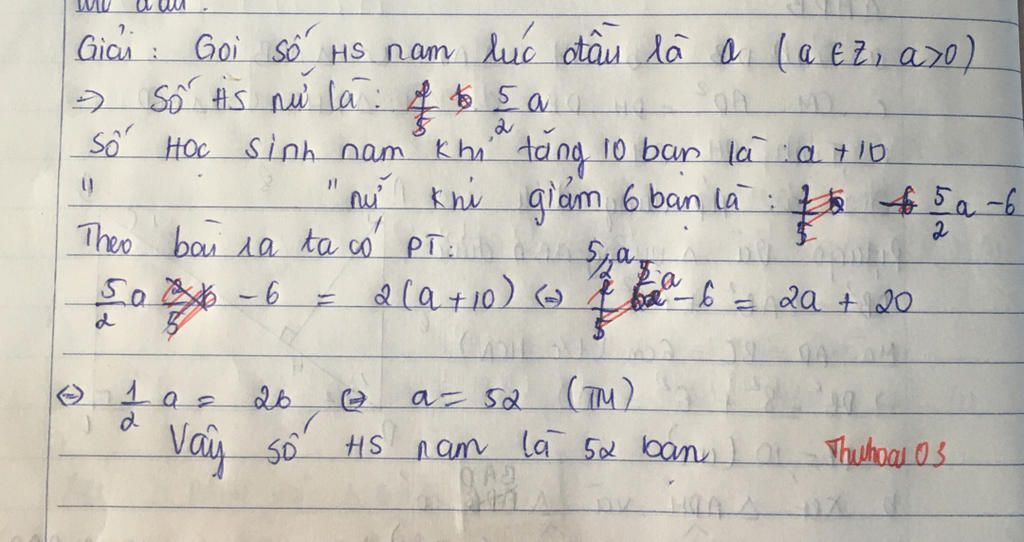 Giải : Goi số HS nam lúc đầu là a ( a ∈ Z, a>0)
=> Số HS nữ là : 5/2 a
Số Học sinh nam khi tăng 10 bạn là : a + 10
" " nữ khi giảm 6 bạn là : 5/2 a - 6
Theo bài ra ta có PT:
5/2 a - 6 = 2(a+10) <=> 5/2 a - 6 = 2a + 20
<=> 1/2 a = 26 <=> a = 52 (TM)
Vậy số HS nam là 52 bạn